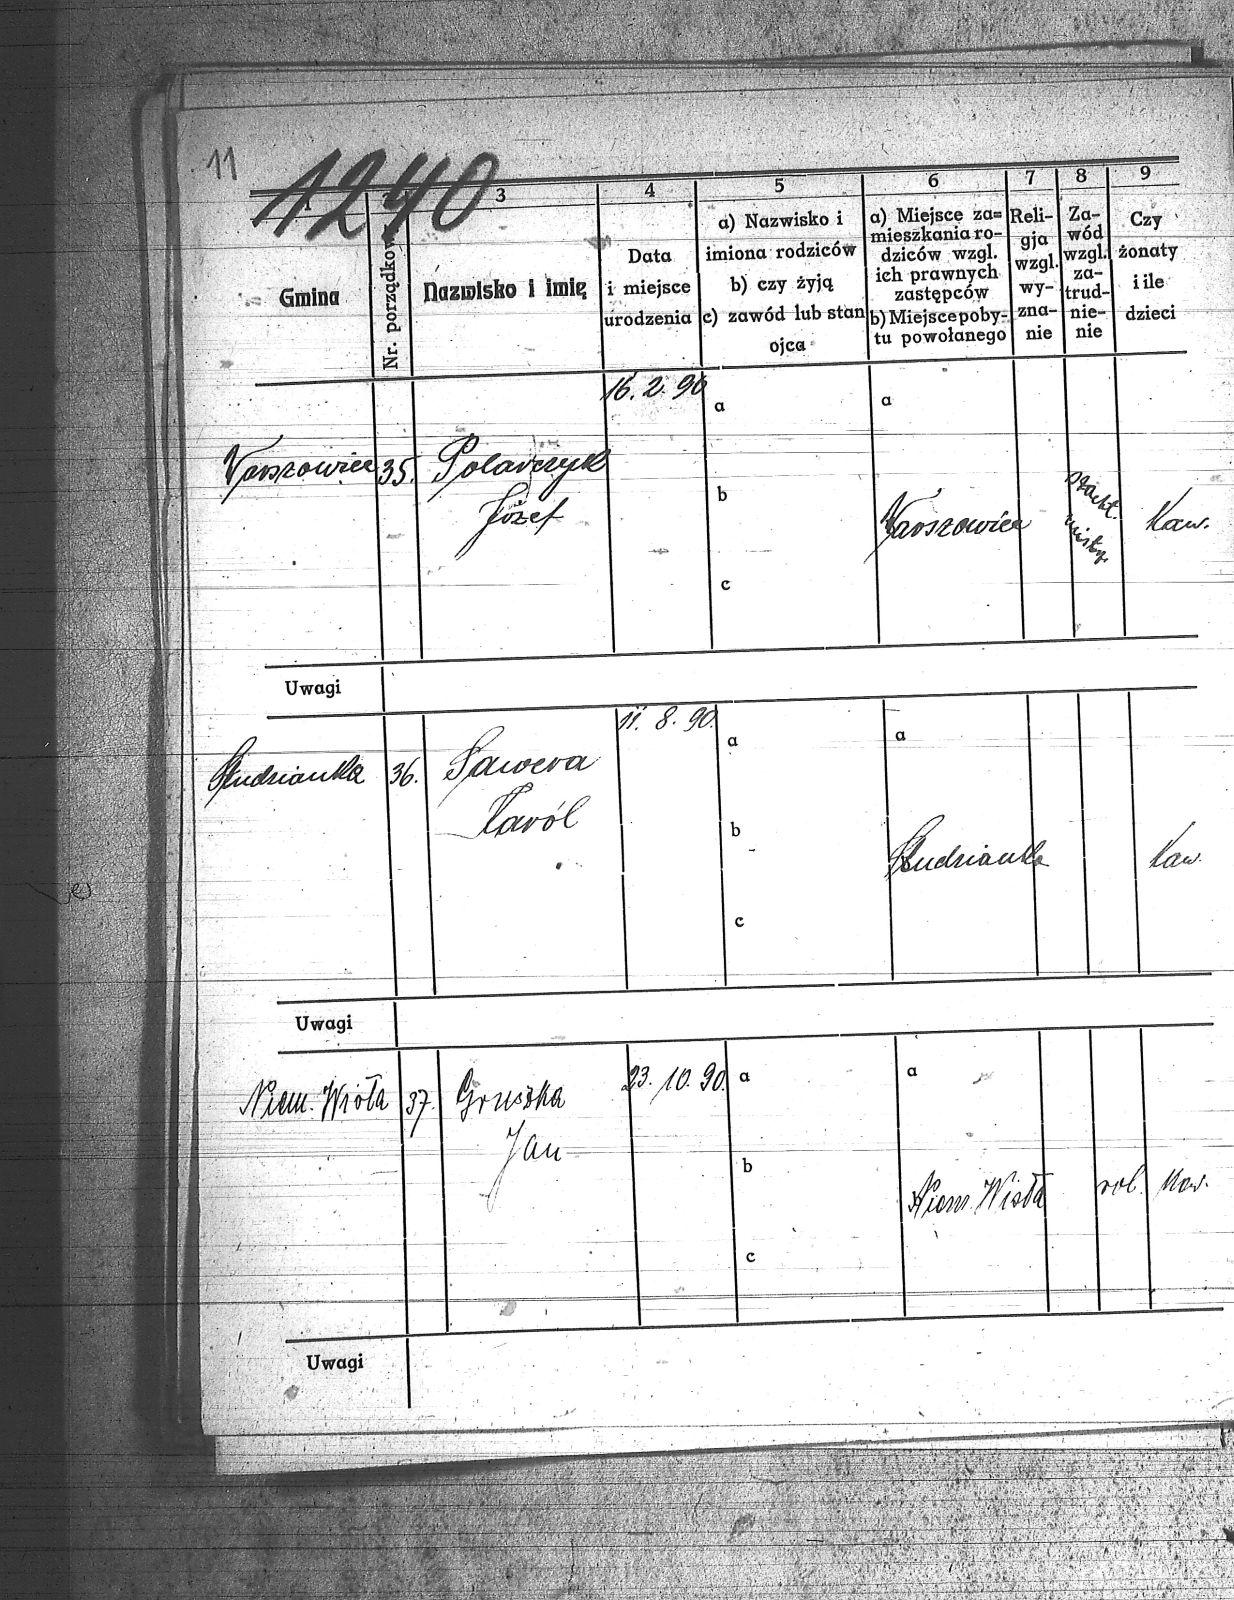 11
1240
1
3
4
5
6
7
8
9
Gmina
Nr. porządkow
Nazwisko i imię
Data
i miejsce
urodzenia
a) Nazwisko i
imiona rodziców
b) czy żyją
c) zawód lub stan
ojca
a) Miejsce za=
mieszkania ro-
dziców wzgl.
ich prawnych
zastępców
b) Miejsce poby-
tu powołanego
Reli-
gja
wzgl.
wy-
zna-
nie
Za-
wód
wzgl.
za-
trud-
nie-
nie
Czy
żonaty
i ile
dzieci
16. 2. 90
a
a
Warszowice
35.
Polarczyk
Józef
b
Warszowice
Kaw.
c
Uwagi
11. 8. 90.
a
a
Studzionka
36.
Sawera
Karól
b
Studzionka
Kaw.
c
Uwagi
Niem. Wisła
37.
Gruszka
Jan
23. 10. 90.
a
a
b
Niem. Wisła
rob.
Kaw.
c
Uwagi